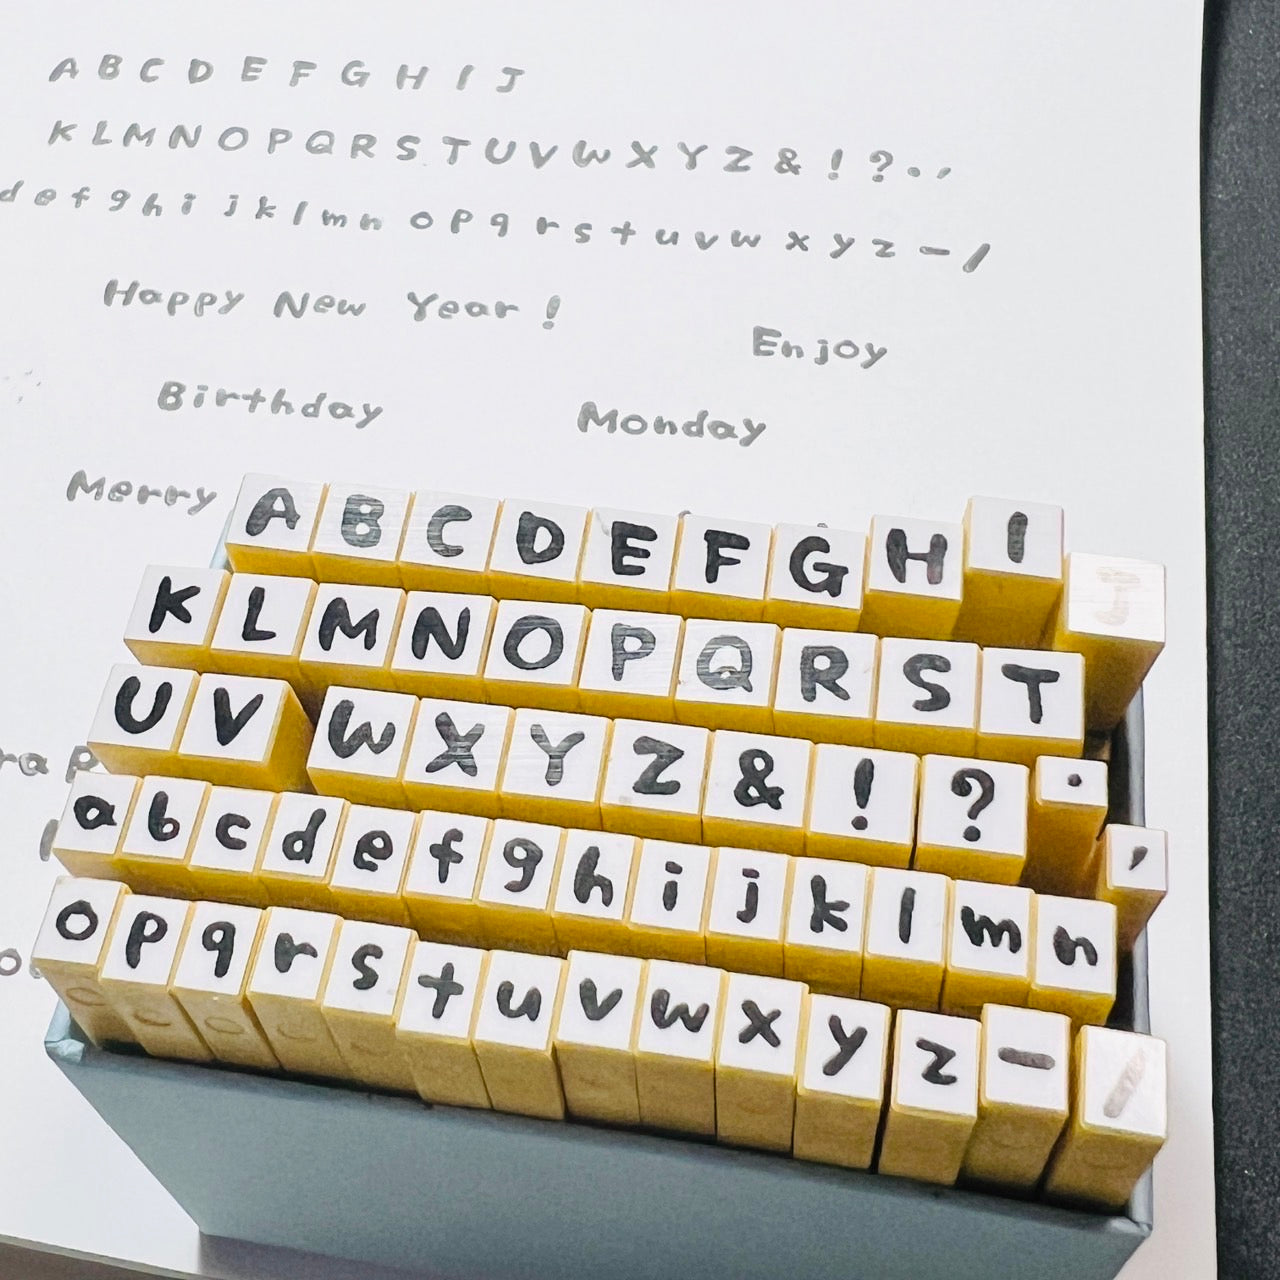 A B C D E F G H I J
K L M N O P Q R S T U V W X Y Z & ! ? . ,
d e f g h i j k l m n o p q r s t u v w x y z - /
Happy New Year !
Enjoy
Birthday
Monday
Merry
A B C D E F G H I J
K L M N O P Q R S T
U V W X Y Z & ! ? . ,
a b c d e f g h i j k l m n
o p q r s t u v w x y z - /